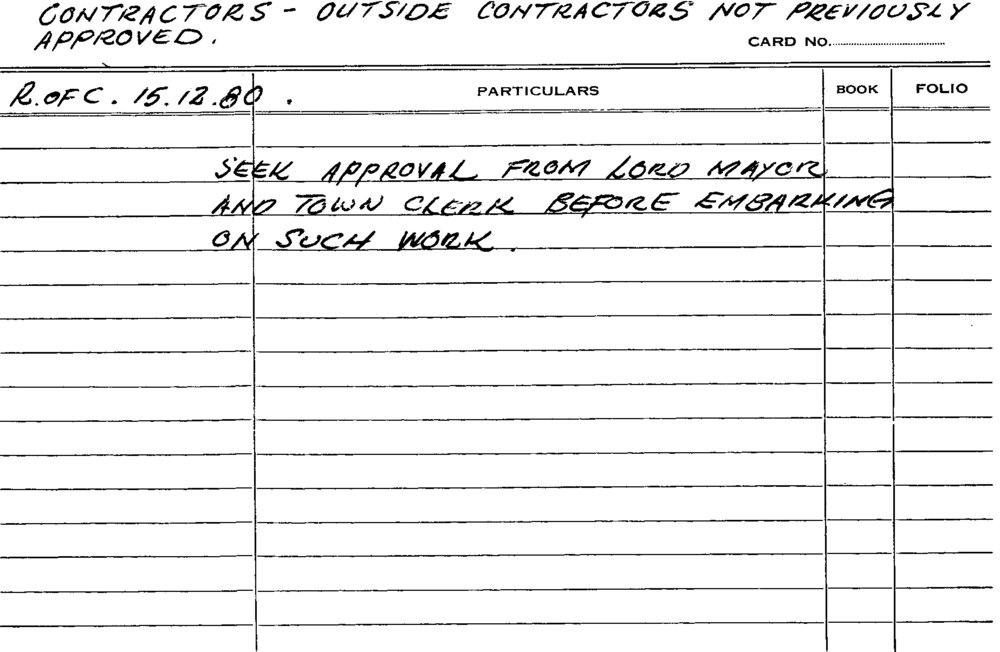 CONTRACTORS - OUTSIDE CONTRACTORS NOT PREVIOUSLY
APPROVED.
CARD NO.
R. OF C. 15.12.80. PARTICULARS BOOK FOLIO
SEEK APPROVAL FROM LORD MAYOR
AND TOWN CLERK BEFORE EMBARKING
ON SUCH WORK.